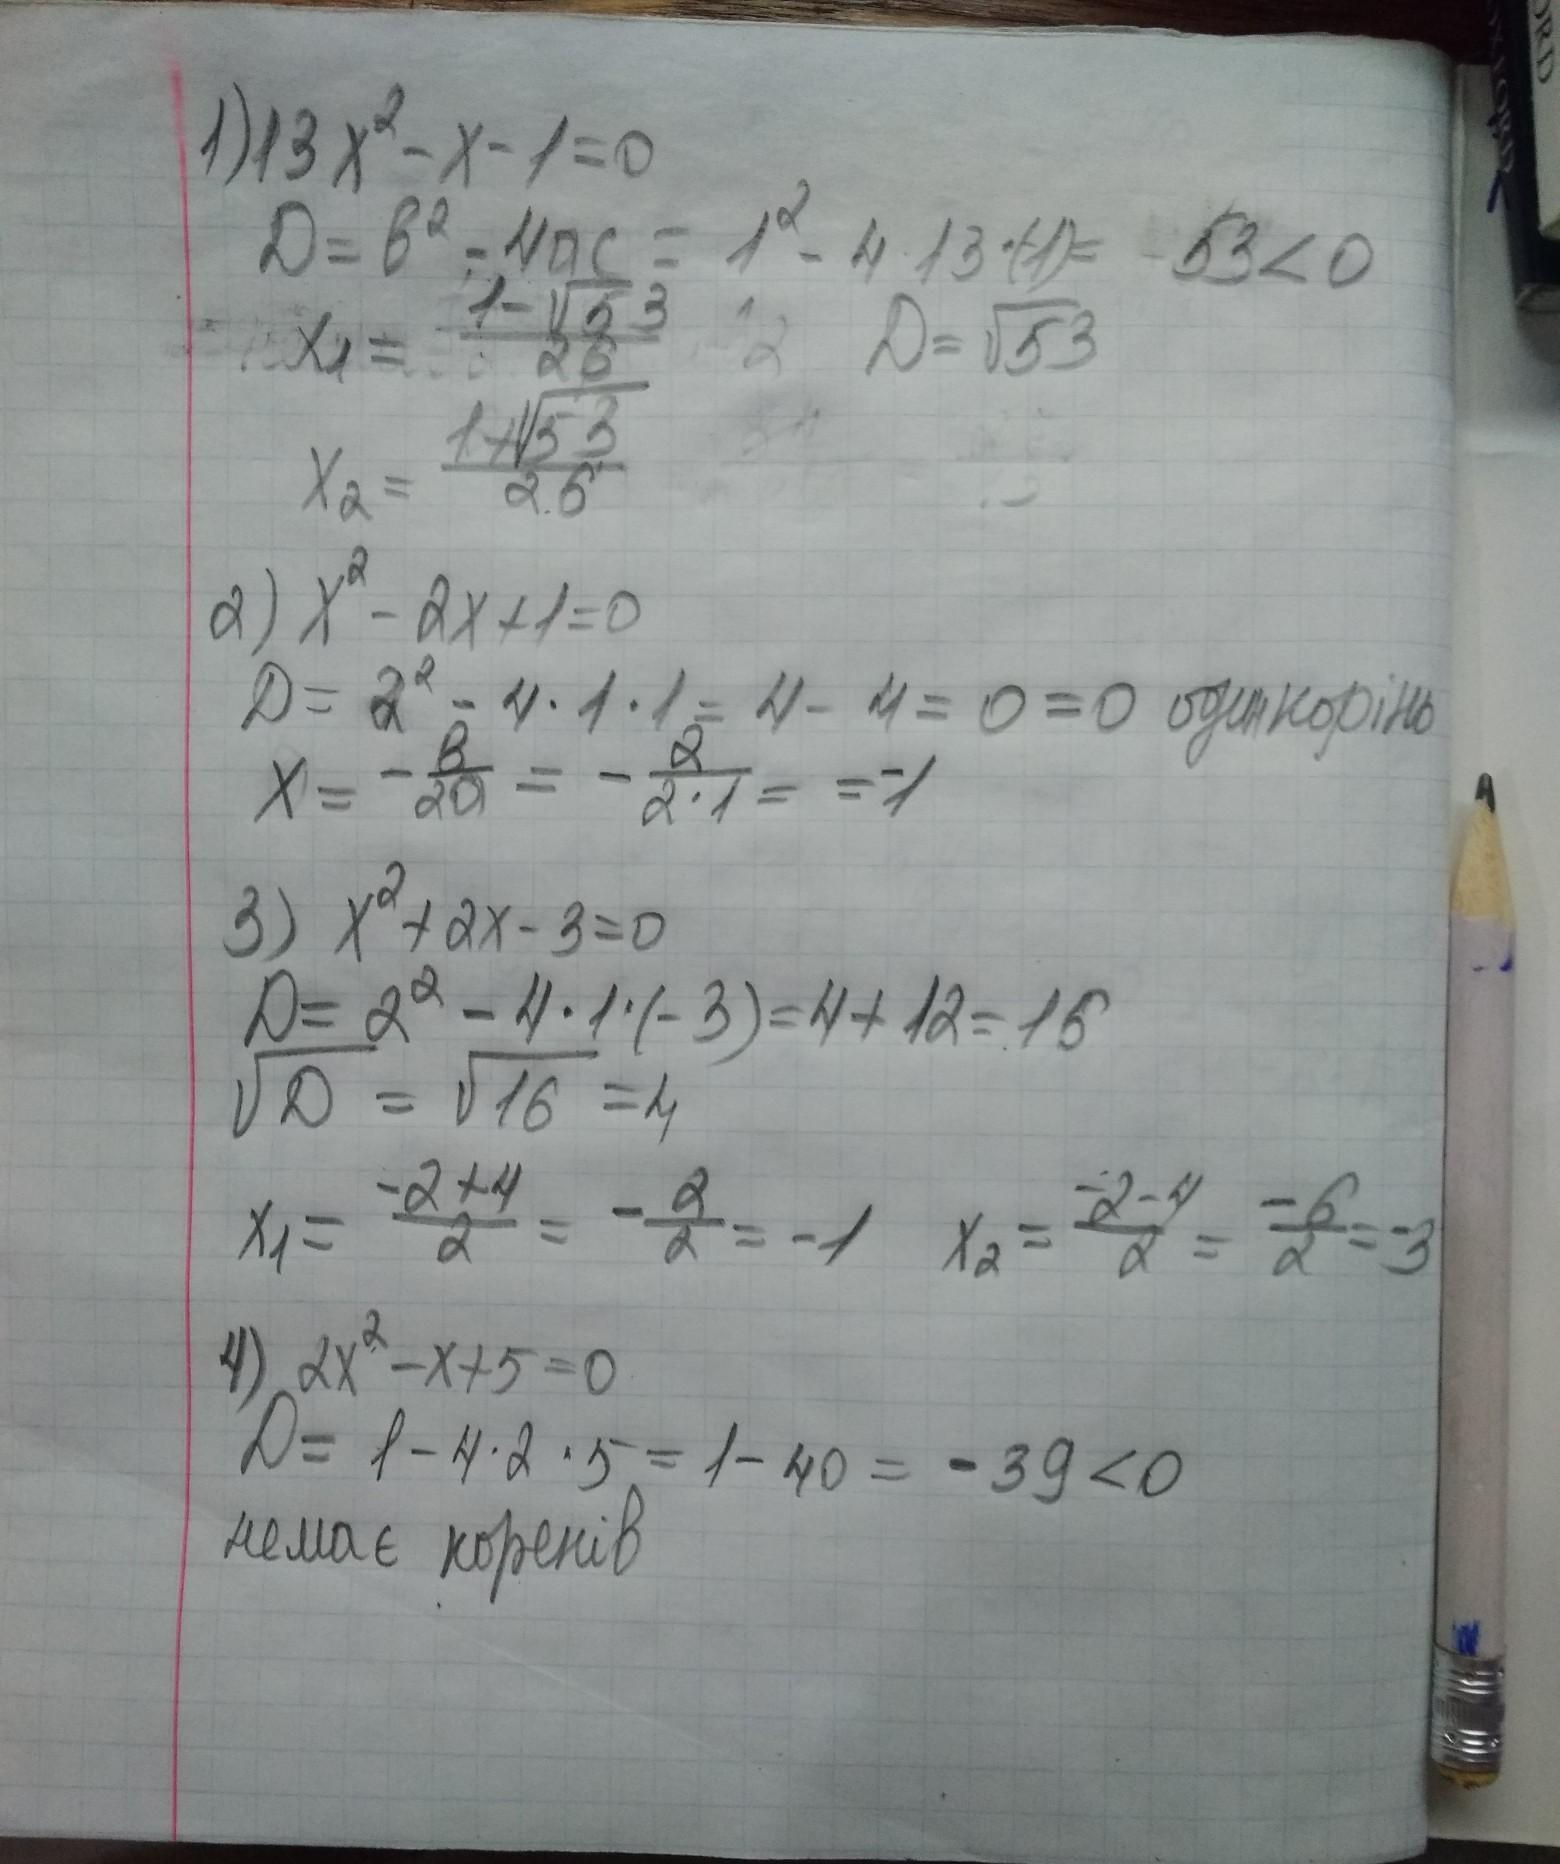 1) 13x² - x - 1 = 0
D = в² - 4ac = 1² - 4·13·(-1) = 53 < 0
x₁ = (1-√53)/26 D = √53
x₂ = (1+√53)/26
2) x² - 2x + 1 = 0
D = 2² - 4·1·1 = 4 - 4 = 0 = 0 один корінь
x = -в/2a = -2/2·1 = = -1
3) x² + 2x - 3 = 0
D = 2² - 4·1·(-3) = 4 + 12 = 16
√D = √16 = 4
x₁ = (-2+4)/2 = -2/2 = -1 x₂ = (-2-4)/2 = -6/2 = -3
4) 2x² - x + 5 = 0
D = 1 - 4·2·5 = 1 - 40 = -39 < 0
немає коренів
OXFORD
ORD